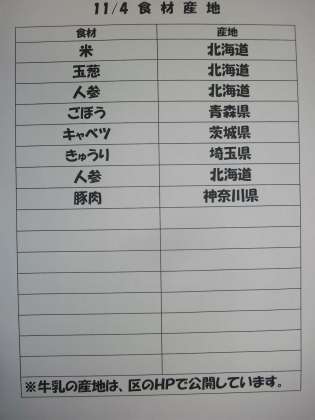 11/4 食材産地
食材 産地
米 北海道
玉葱 北海道
人参 北海道
ごぼう 青森県
キャベツ 茨城県
きゅうり 埼玉県
人参 北海道
豚肉 神奈川県
※牛乳の産地は、区のHPで公開しています。